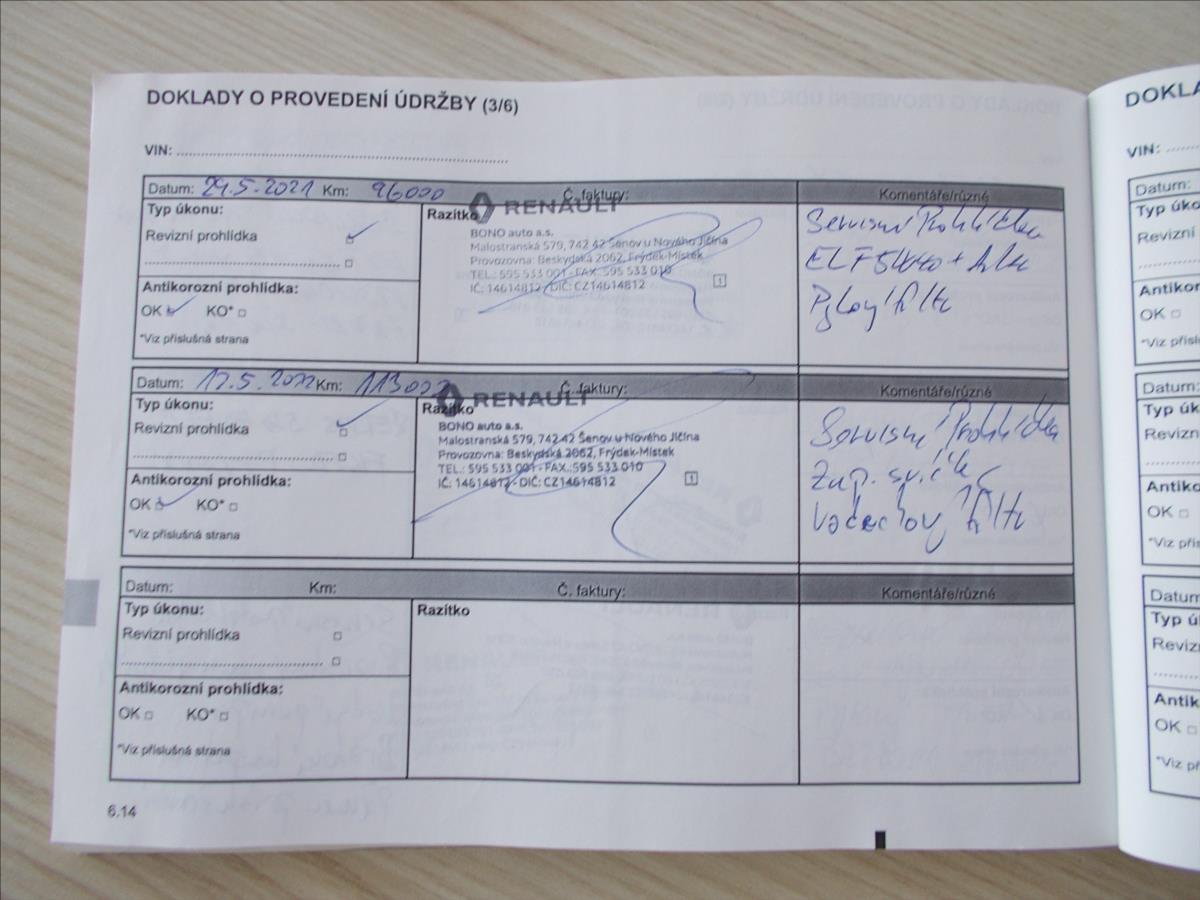 DOKLADY O PROVEDENÍ ÚDRŽBY (3/6)
VIN:
Datum: 29.5.2021 Km: 96000 Č. faktury: Komentáře/různé
Typ úkonu:
Revizní prohlídka
Antikorozní prohlídka:
OK KO*
*Viz příslušná strana
Razítko
RENAULT
BONO auto a.s.
Malostranská 579, 742 42 Šenov u Nového Jičína
Provozovna: Beskydská 2062, Frýdek-Místek
TEL.: 595 533 001 - FAX: 595 533 010
IČ: 14614812 - DIČ: CZ14614812
1
Servisní Prohlídka
ELF 5W40 +
Pylový filtr
Datum: 12.5.2022 Km: Č. faktury: Komentáře/různé
Typ úkonu:
Revizní prohlídka
Antikorozní prohlídka:
OK KO*
*Viz příslušná strana
Razítko
RENAULT
BONO auto a.s.
Malostranská 579, 742 42 Šenov u Nového Jičína
Provozovna: Beskydská 2062, Frýdek-Místek
TEL.: 595 533 001 - FAX.: 595 533 010
IČ: 14614812 - DIČ: CZ14614812
1
Servisní Prohlídka
Zap. svíčky
Vzduchový filtr
Datum: Km: Č. faktury: Komentáře/různé
Typ úkonu:
Revizní prohlídka
Antikorozní prohlídka:
OK KO*
*Viz příslušná strana
Razítko
6.14
DOKLA
VIN:
Datum:
Typ úko
Revizní
Antikor
OK
*Viz přísl
Datum:
Typ úk
Revizn
Antiko
OK
*Viz pří
Datum
Typ ú
Reviz
Antik
OK
*Viz př